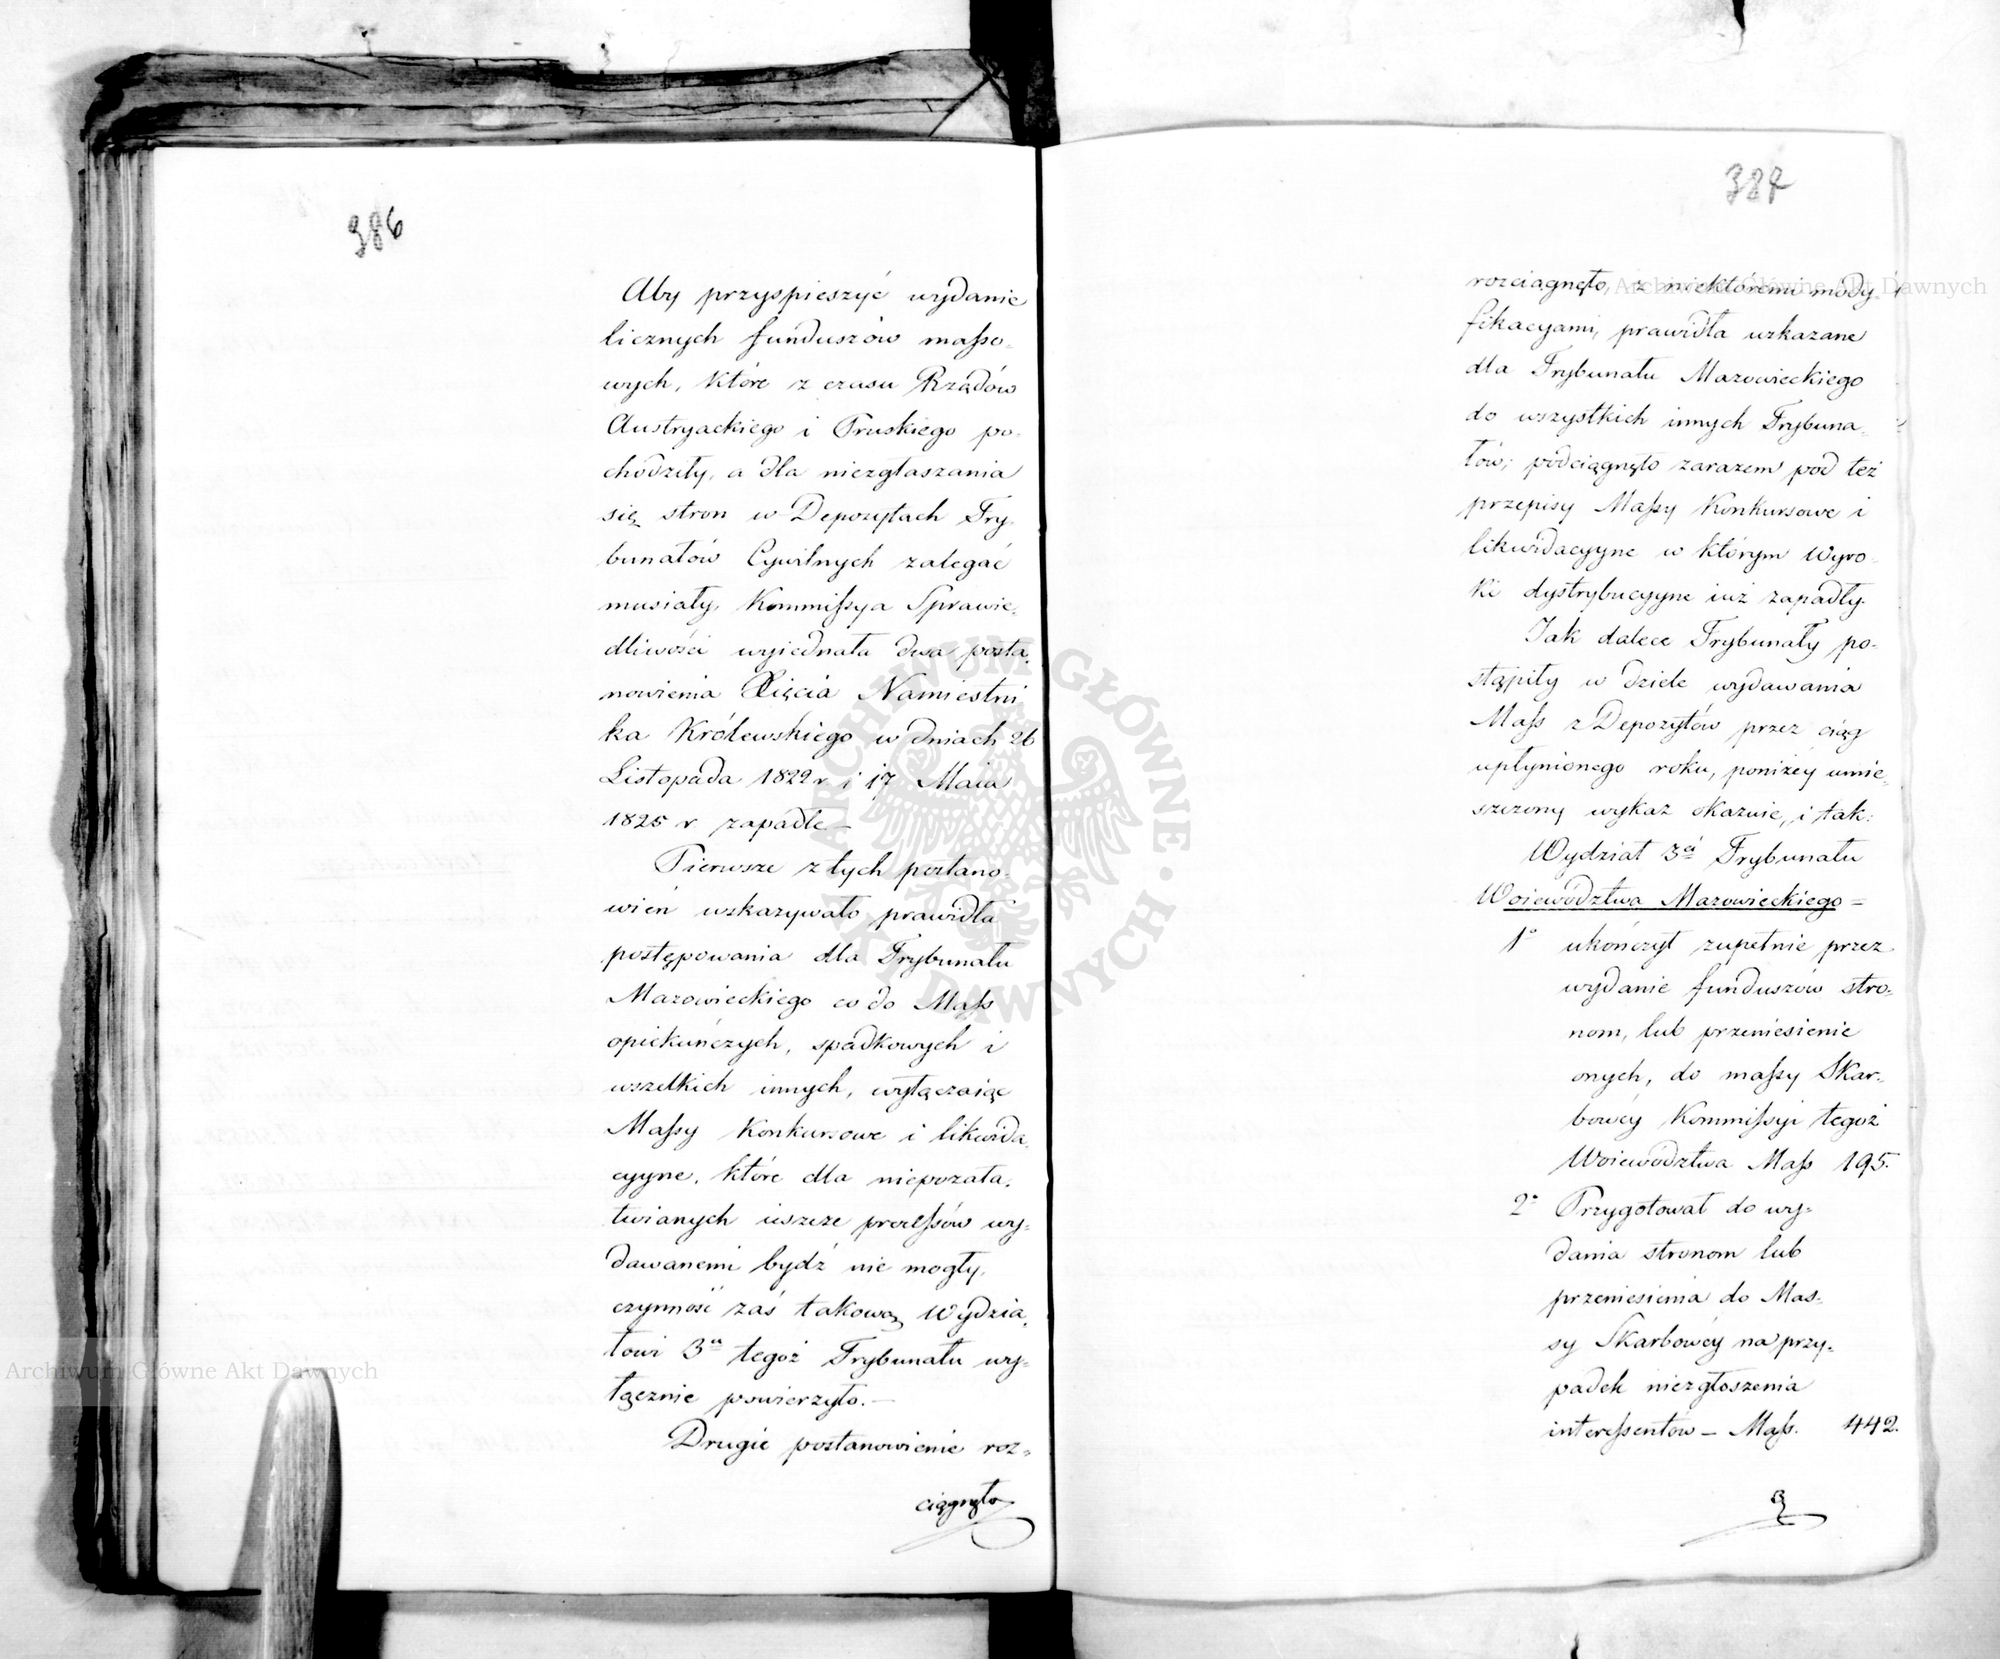 386
Aby przyspieszyć wydanie
licznych funduszów masso-
wych, które z czasu Rządów
Austryackiego i Pruskiego po-
chodziły, a dla niezgłaszania
się stron w Depozytach Try-
bunałów Cywilnych zalegać
musiały, Kommissya Sprawie-
dliwości wyiednała dwa posta-
nowienia Xięcia Namiestni
ka Królewskiego w dniach 26
Listopada 1822 r i 17 Maia
1825 r zapadłe —
Pierwsze z tych postano-
wień wskazywało prawidła
postępowania dla Trybunału
Mazowieckiego co do Mass
opiekuńczych, spadkowych i
wszelkich innych, wyłączaiąc
Massy Konkursowe i likwida-
cyyne, które dla niepozała-
twianych ieszcze processów wy-
dawanemi bydź nie mogły,
czynność zaś takową Wydzia-
łowi 3mu tegoż Trybunału wy-
łącznie powierzyło. —
Drugie postanowienie roz-
ciągnęło
387
rozciągnęło, z niektóremi mody-
fikacyami, prawidła wskazane
dla Trybunału Mazowieckiego
do wszystkich innych Trybuna-
łów; podciągnęło zarazem pod też
przepisy Massy Konkursowe i
likwidacyyne w którym Wyro-
ki dystrybucyyne iuż zapadły.
Jak dalece Trybunały po-
stąpiły w dziele wydawania
Mass z Depozytów przez ciąg
upłynionego roku, poniżey umie-
szczony wykaz okazuie, i tak:
Wydział 3ci Trybunału
Woiewództwa Mazowieckiego =
1° ukończył zupełnie przez
wydanie funduszów stro-
nom, lub przeniesienie
onych, do massy Skar-
bowéy Kommissyi tegoż
Woiewództwa Mass 195.
2° Przygotował do wy-
dania stronom lub
przeniesienia do Mas-
sy Skarbowéy na przy-
padek niezgłoszenia
interessentów — Mass. 442.
Archiwum Główne Akt Dawnych
Archiwum Główne Akt Dawnych
ARCHIWUM GŁÓWNE AKT DAWNYCH